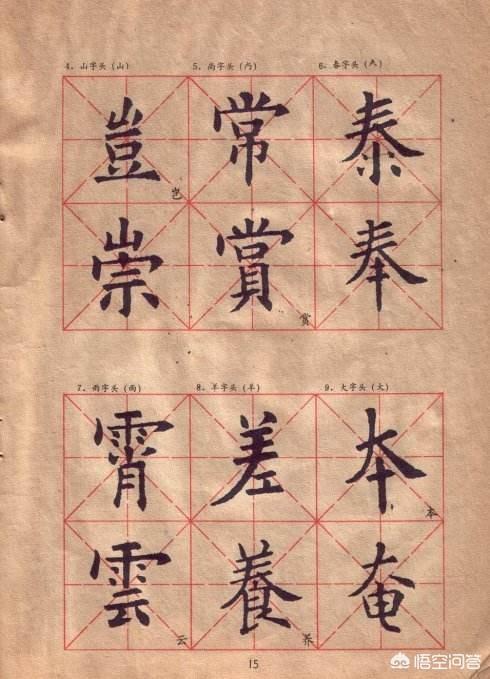 4、山字头（山） 5、尚字头（龸） 6、春字头（𡗗）
豈 常 泰
岂
崇 賞 奉
赏
7、雨字头（雨） 8、羊字头（羊） 9、大字头（大）
霄 差 夲
本
雲 養 奄
云 养
15
悟空问答